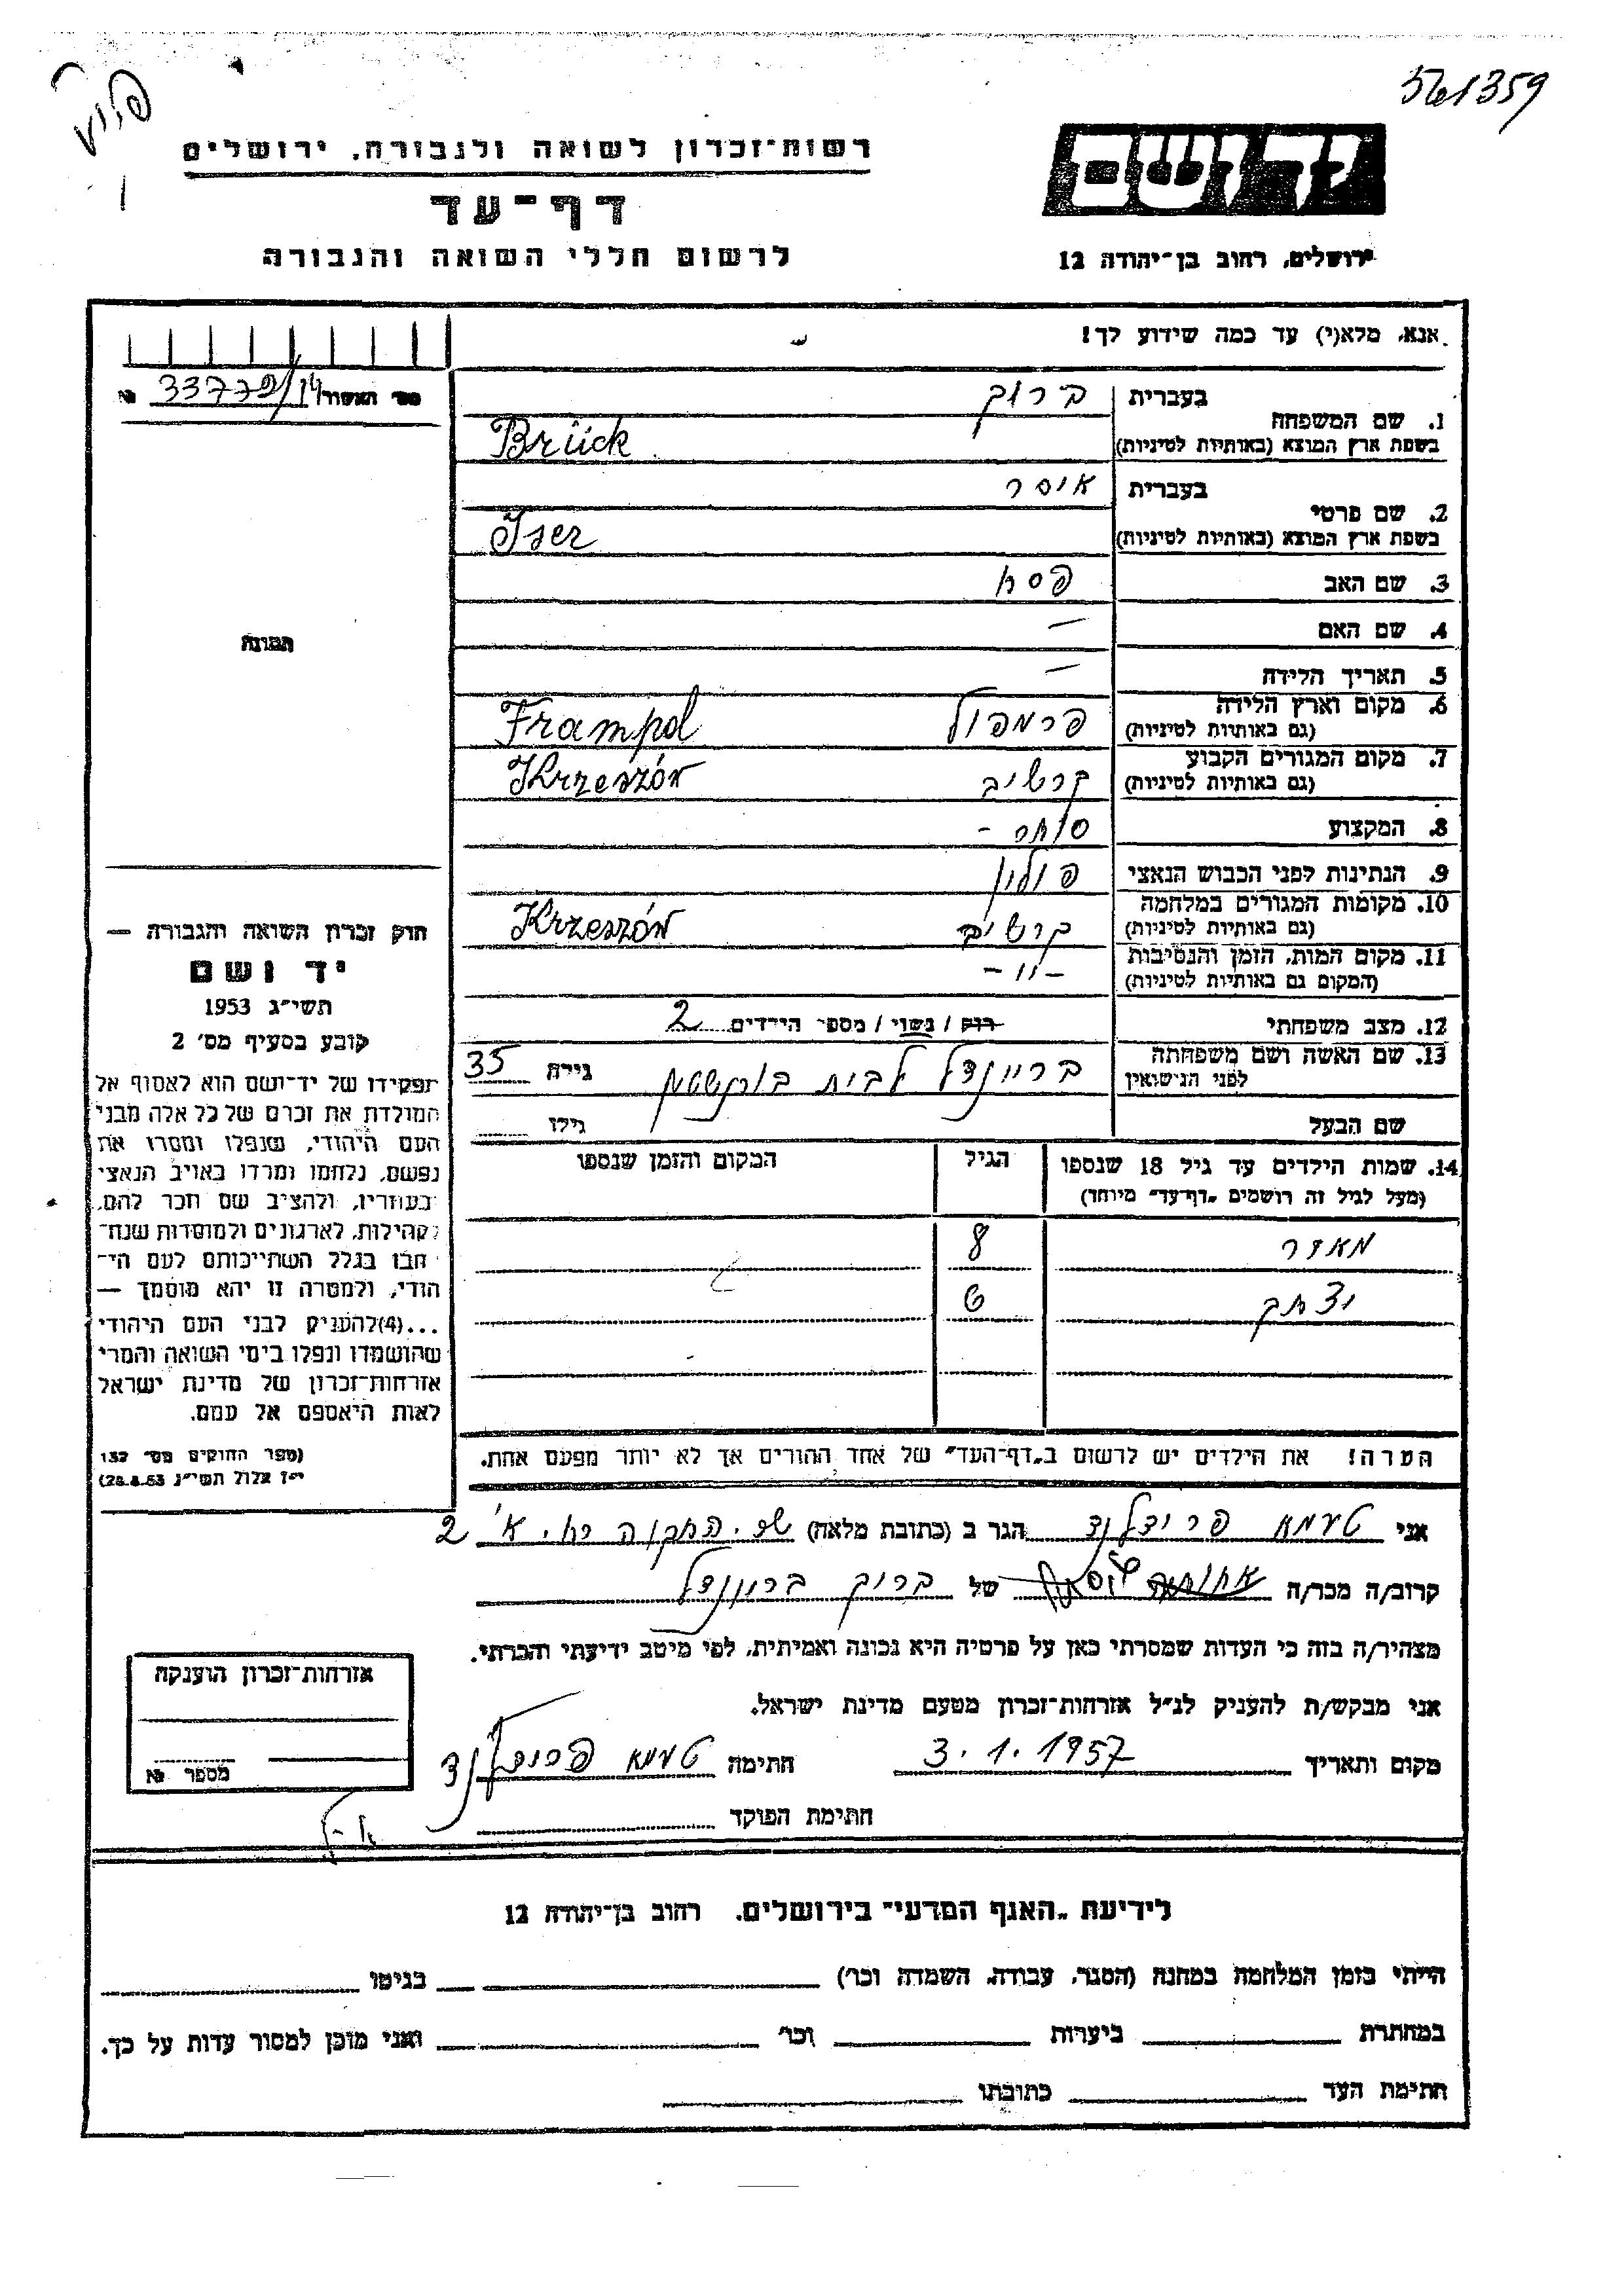 561359
רשות־זכרון לשואה ולגבורה, ירושלים
דף־עד
לרשום חללי השואה והגבורה
יד ושם
ירושלים, רחוב בן־יהודה 12
אנא, מלא(י) עד כמה שידוע לך!
מס׳ האשור № 33772/14
תמונה
חוק זכרון השואה והגבורה —
יד ושם
תשי״ג 1953
קובע בסעיף מס׳ 2
תפקידו של יד־ושם הוא לאסוף אל
המולדת את זכרם של כל אלה מבני
העם היהודי, שנפלו ומסרו את
נפשם, נלחמו ומרדו באויב הנאצי
בעוזריו, ולהציב שם וזכר להם,
לקהילות, לארגונים ולמוסדות שנח־
רבו בגלל השתייכותם לעם הי־
הודי, ולמטרה זו יהא מוסמך —
...(4)להעניק לבני העם היהודי
שהושמדו ונפלו בימי השואה והמרי
אזרחות־זכרון של מדינת ישראל
לאות היאספם אל עמם.
(ספר החוקים מס׳ 132
י״ז אלול תשי״ג 28.8.53)
בעברית ברוק
1. שם המשפחה
בשפת ארץ המוצא (באותיות לטיניות) Brück
בעברית איסר
2. שם פרטי
בשפת ארץ המוצא (באותיות לטיניות) Iser
3. שם האב פסח
4. שם האם —
5. תאריך הלידה —
6. מקום וארץ הלידה פרמפול Frampol
(גם באותיות לטיניות)
7. מקום המגורים הקבוע קרשיב Krzeszów
(גם באותיות לטיניות)
8. המקצוע סוחר -
9. הנתינות לפני הכבוש הנאצי פולין
10. מקומות המגורים במלחמה קרשיב Krzeszów
(גם באותיות לטיניות)
11. מקום המות, הזמן והנסיבות -״-
(המקום גם באותיות לטיניות)
12. מצב משפחתי רוק / נשוי / מספר הילדים 2
13. שם האשה ושם משפחתה בריינדל לבית גילה 35
לפני הנישואין
שם הבעל גילו
14. שמות הילדים עד גיל 18 שנספו הגיל המקום והזמן שנספו
(מעל לגיל זה רושמים „דף־עד״ מיוחד)
מאיר 8
יצחק 6
הערה! את הילדים יש לרשום ב„דף־העד״ של אחד ההורים אך לא יותר מפעם אחת.
אני טעמא פרידלנד הגר ב (כתובת מלאה) שכ. התקוה רח. א׳ 2
קרוב/ה מכר/ה של ברוק בריינדל
מצהיר/ה בזה כי העדות שמסרתי כאן על פרטיה היא נכונה ואמיתית, לפי מיטב ידיעתי והכרתי.
אני מבקש/ת להעניק לנ״ל אזרחות־זכרון מטעם מדינת ישראל.
מקום ותאריך 3.1.1957 חתימה טעמא פרידלנד
חתימת הפוקד
אזרחות־זכרון הוענקה
מספר №
לידיעת „האגף המדעי״ בירושלים. רחוב בן־יהודה 12
הייתי בזמן המלחמה במחנה (הסגר, עבודה, השמדה וכו׳) בגיטו
במחתרת ביערות וכו׳ ואני מוכן למסור עדות על כך.
חתימת העד כתובתו